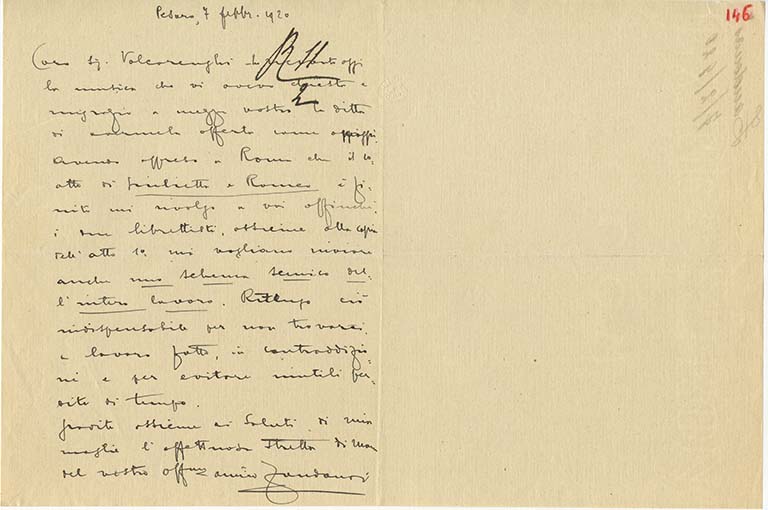 Pesaro, 7 febbr. 1920
146
Caro Sig. Valcarenghi oggi
la musica che vi avevo chiesto e
ringrazio a mezzo vostro la ditta
di avermela offerta come omaggio.
Avendo appreso a Roma che il 1º
atto di Giulietta e Romeo è fi-
nito mi rivolgo a voi affinchè
i due librettisti, assieme alla copia
dell'atto 1º mi vogliano inviare
anche uno schema scenico del-
l'intero lavoro. Ritengo ciò
indispensabile per non trovarsi,
a lavoro fatto, in contraddizio-
ni e per evitare inutili per-
dite di tempo.
Gradite assieme ai saluti di mia
moglie l'affettuosa stretta di man
del vostro aff.mo amico Zandonai